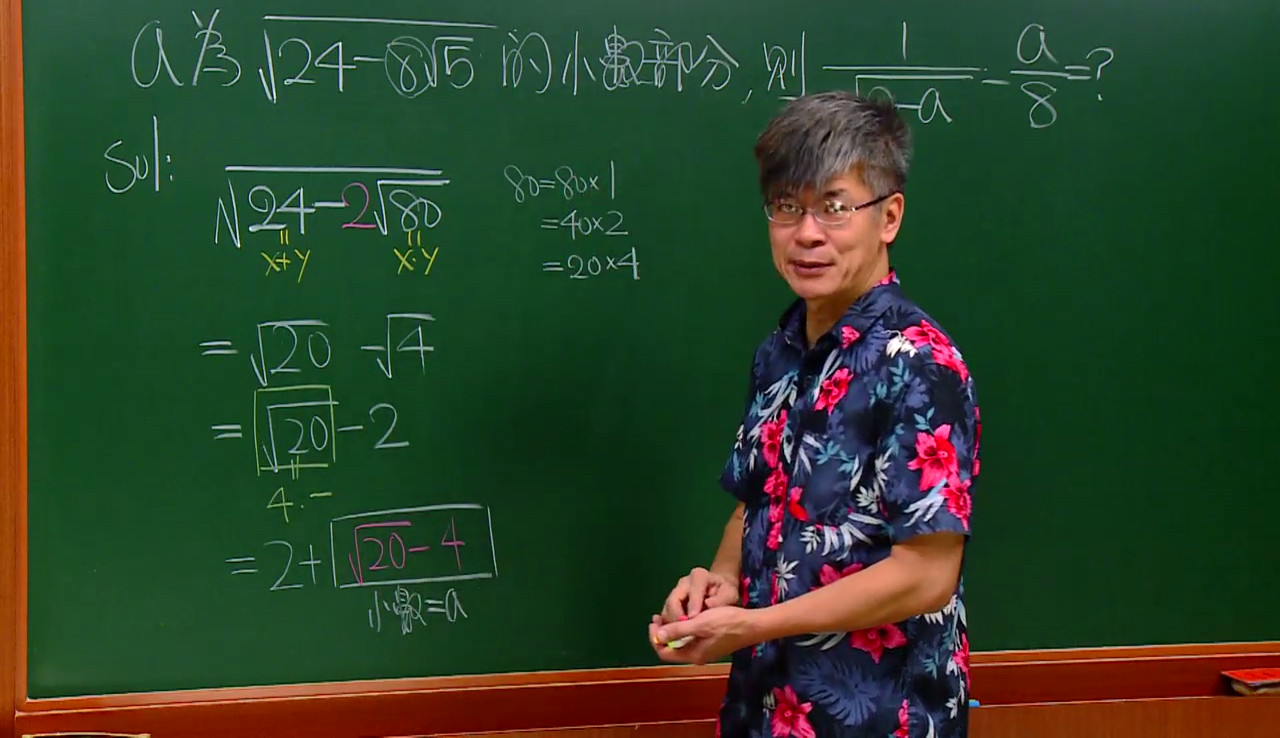 a為√24-8√5的小數部分,則 1/√-a - a/8=?
Sol:
√24-2√80
x+y x·y
80=80×1
=40×2
=20×4
=√20 -√4
=√20-2
4.-
=2+√20-4
小數=a